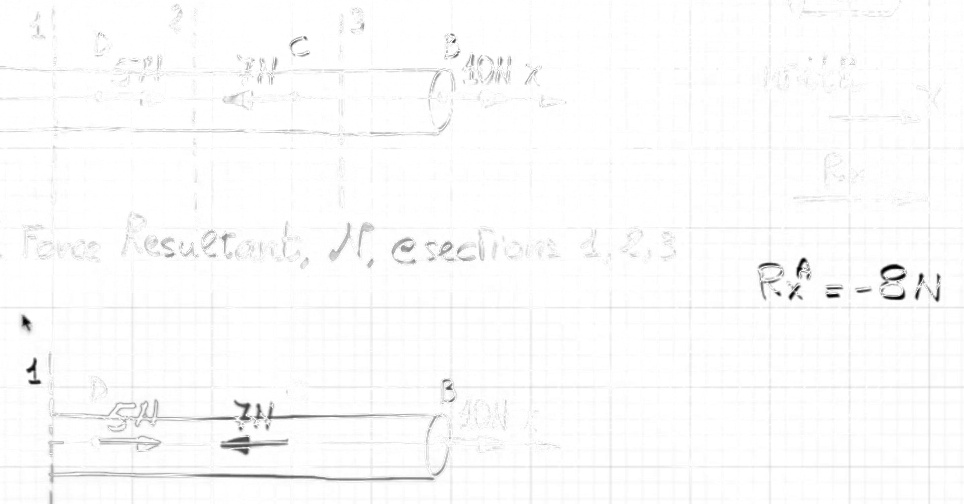 1 2 3
D C B
5N 7N 10N x
with
x
Rx
Force Resultant, N, @ sections 1,2,3
RxA = -8N
1
D B
5N 7N 10N x